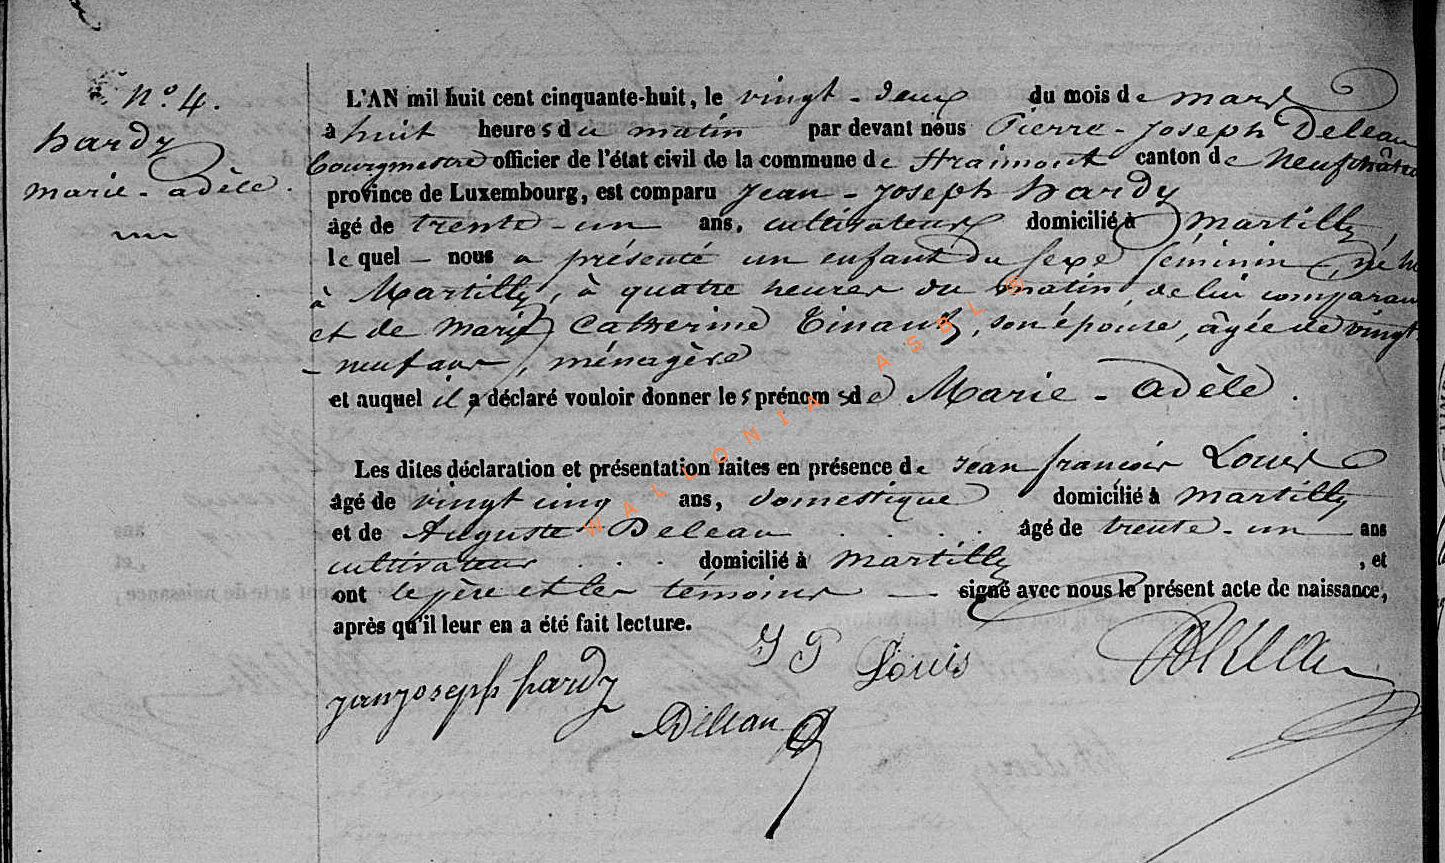 n° 4.
hardy
marie-adèle.
L'AN mil huit cent cinquante-huit, le vingt-deux du mois de mars
à huit heures du matin par devant nous Pierre-Joseph Deleau
bourgmestre officier de l'état civil de la commune de Straimont canton de Neufchâteau
province de Luxembourg, est comparu Jean-Joseph hardy
âgé de trente-un ans, cultivateur domicilié à Martilly,
le quel nous a présenté un enfant du sexe féminin, né
à Martilly, à quatre heures du matin, de lui comparant
et de Marie Catherine Tinant, son épouse, âgée de vingt
-neuf ans, ménagère
et auquel il a déclaré vouloir donner les prénoms de Marie-Adèle.
Les dites déclaration et présentation faites en présence de Jean françois Louis
âgé de vingt cinq ans, domestique domicilié à Martilly
et de Auguste Deleau . . . . âgé de trente-un ans
cultivateur . . . domicilié à Martilly, et
ont le père et les témoins signé avec nous le présent acte de naissance,
après qu'il leur en a été fait lecture.
J F Louis
Deleau
janjoseph hardy
Deleau
WALLONIA ASBL